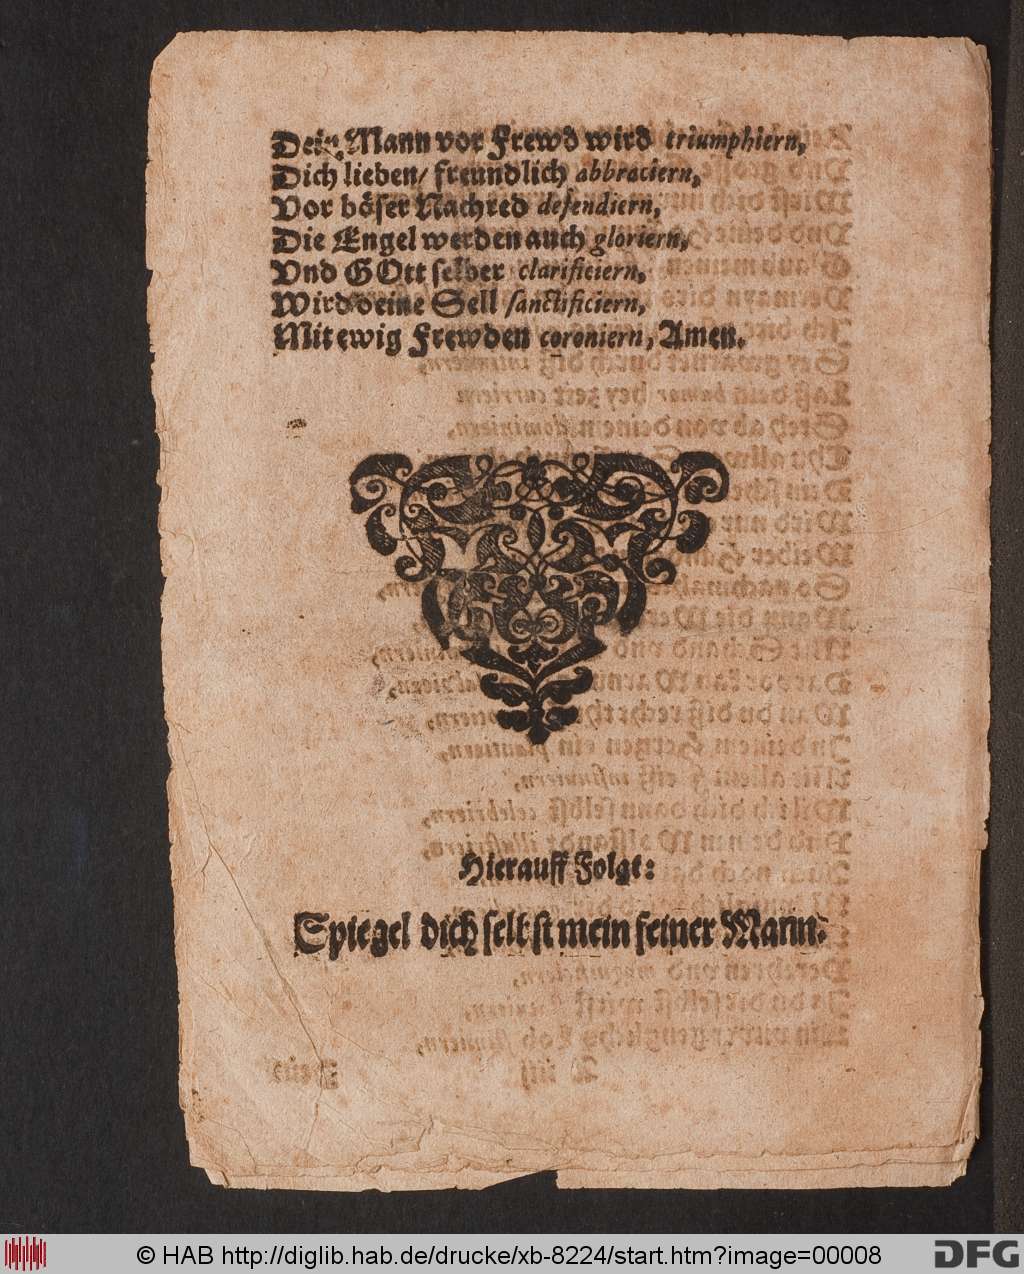 Dein Mann vor Frewd wird triumphiern,
Dich lieben/ freundlich abbraciern,
Vor böser Nachred defendiern,
Die Engel werden auch gloriern,
Vnd GOtt selber clarificiern,
Wird deine Sell sanctificiern,
Mit ewig Frewden coroniern, Amen.
Hierauff Folgt:
Spiegel dich selbst mein feiner Mann.
© HAB http://diglib.hab.de/drucke/xb-8224/start.htm?image=00008
DFG